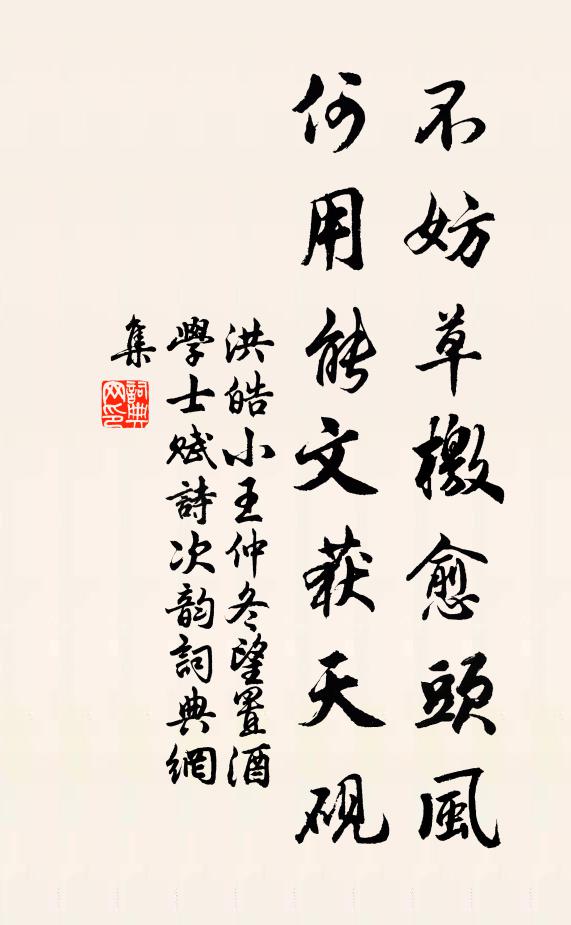 不妨草檄愈頭風
何用能文获天硯
洪皓小王仲冬望置酒
學士賦詩次韵詞典網
集
詞典
网印